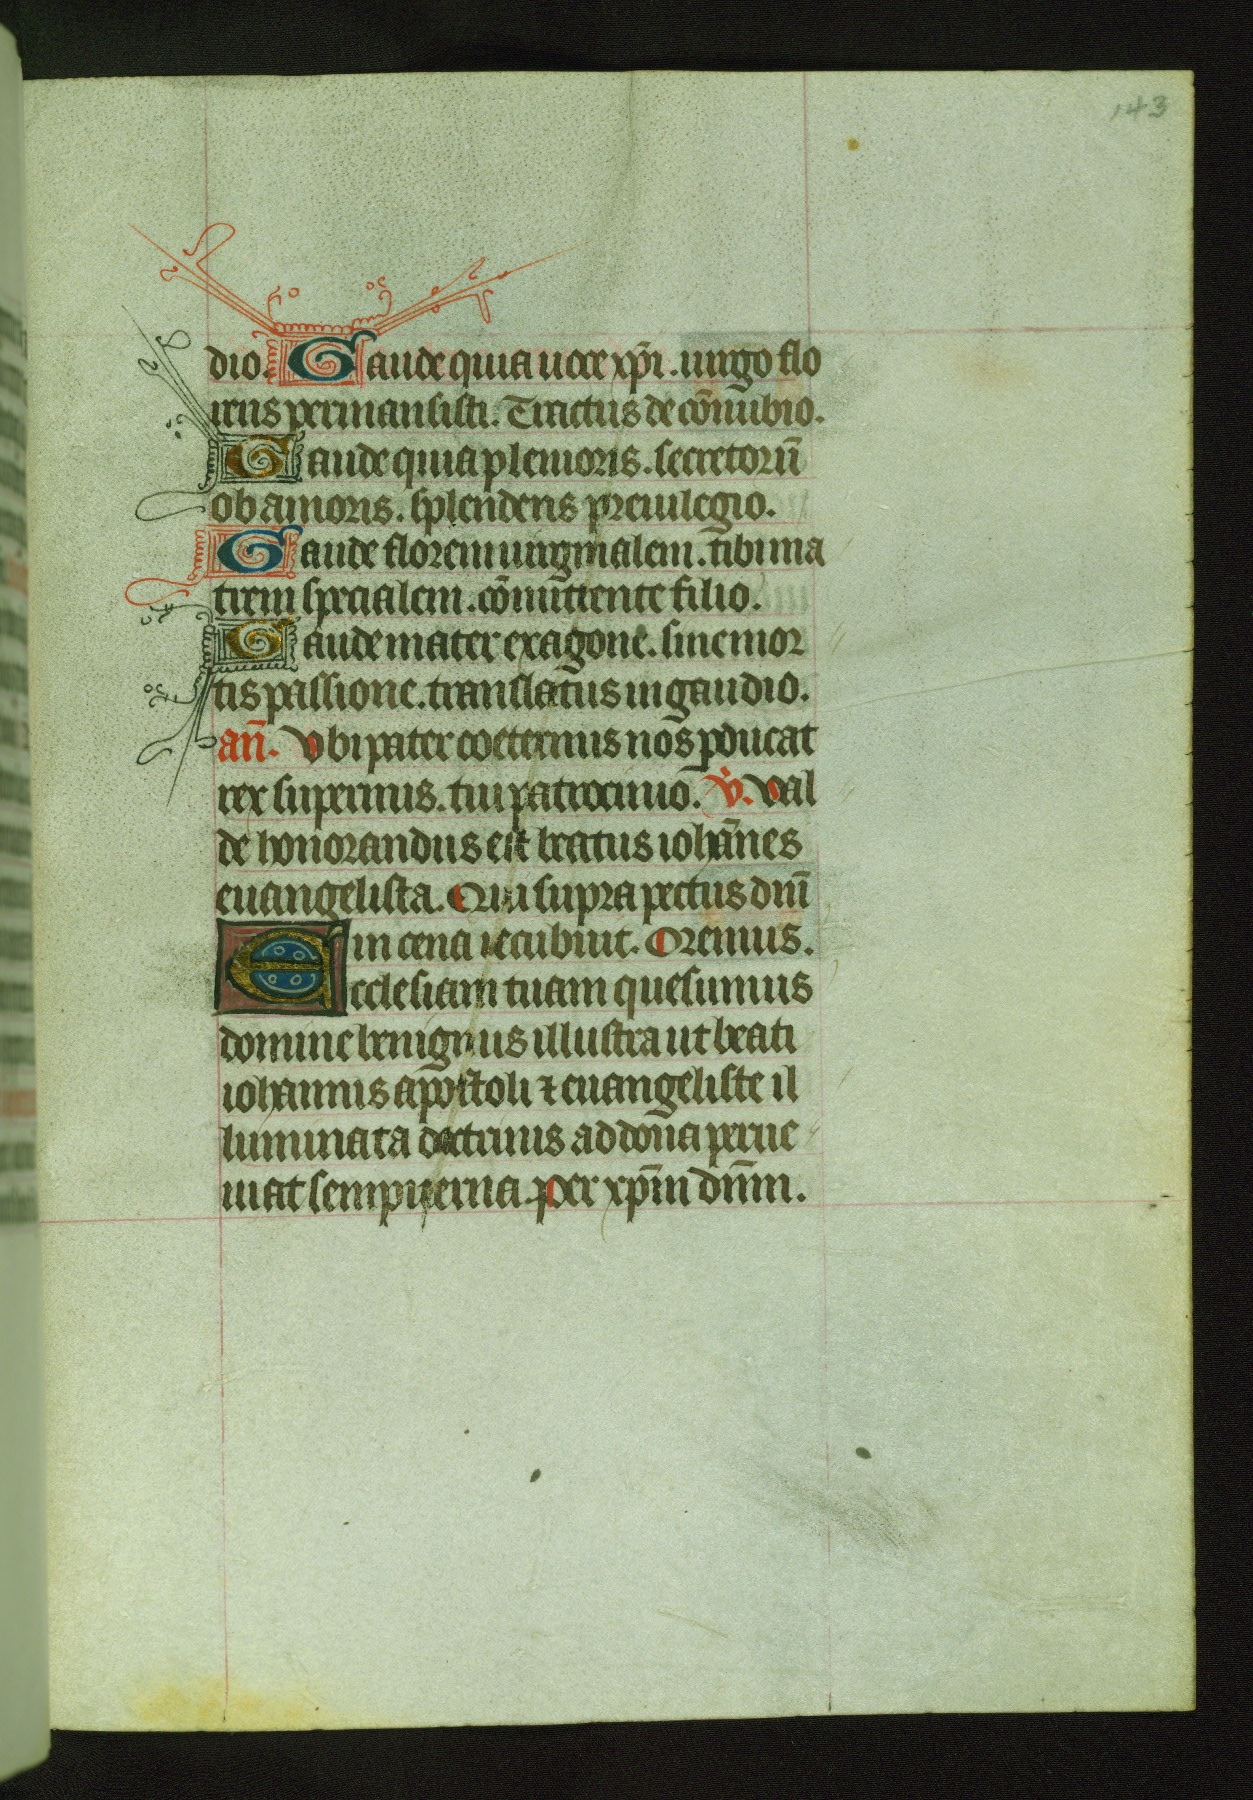 143
dio. Gaude quia uoce xp̄i. uirgo flo
rens permansisti. Tractus de cōnubio.
Gaude quia plenioris. secretorū
ob amoris. splendens preiulegio.
Gaude florem uirginalem. tibi ma
trem specialem. cōmittente filio.
Gaude mater exagone. sine mor
tis passione. translatus in gaudio.
an̄. Vbi pater coeternus nos p̄ducat
rex supernus. tui patrocinio. v̄. Val
de honorandus est beatus iohānes
euangelista. Qui supra pectus dn̄i
in cena recubuit. Oremus.
Ecclesiam tuam quesumus
domine benignus illustra ut beati
iohannis apostoli ⁊ euangeliste il
luminata doctrinis ad dona perue
niat sempiterna. per xp̄m dn̄m.